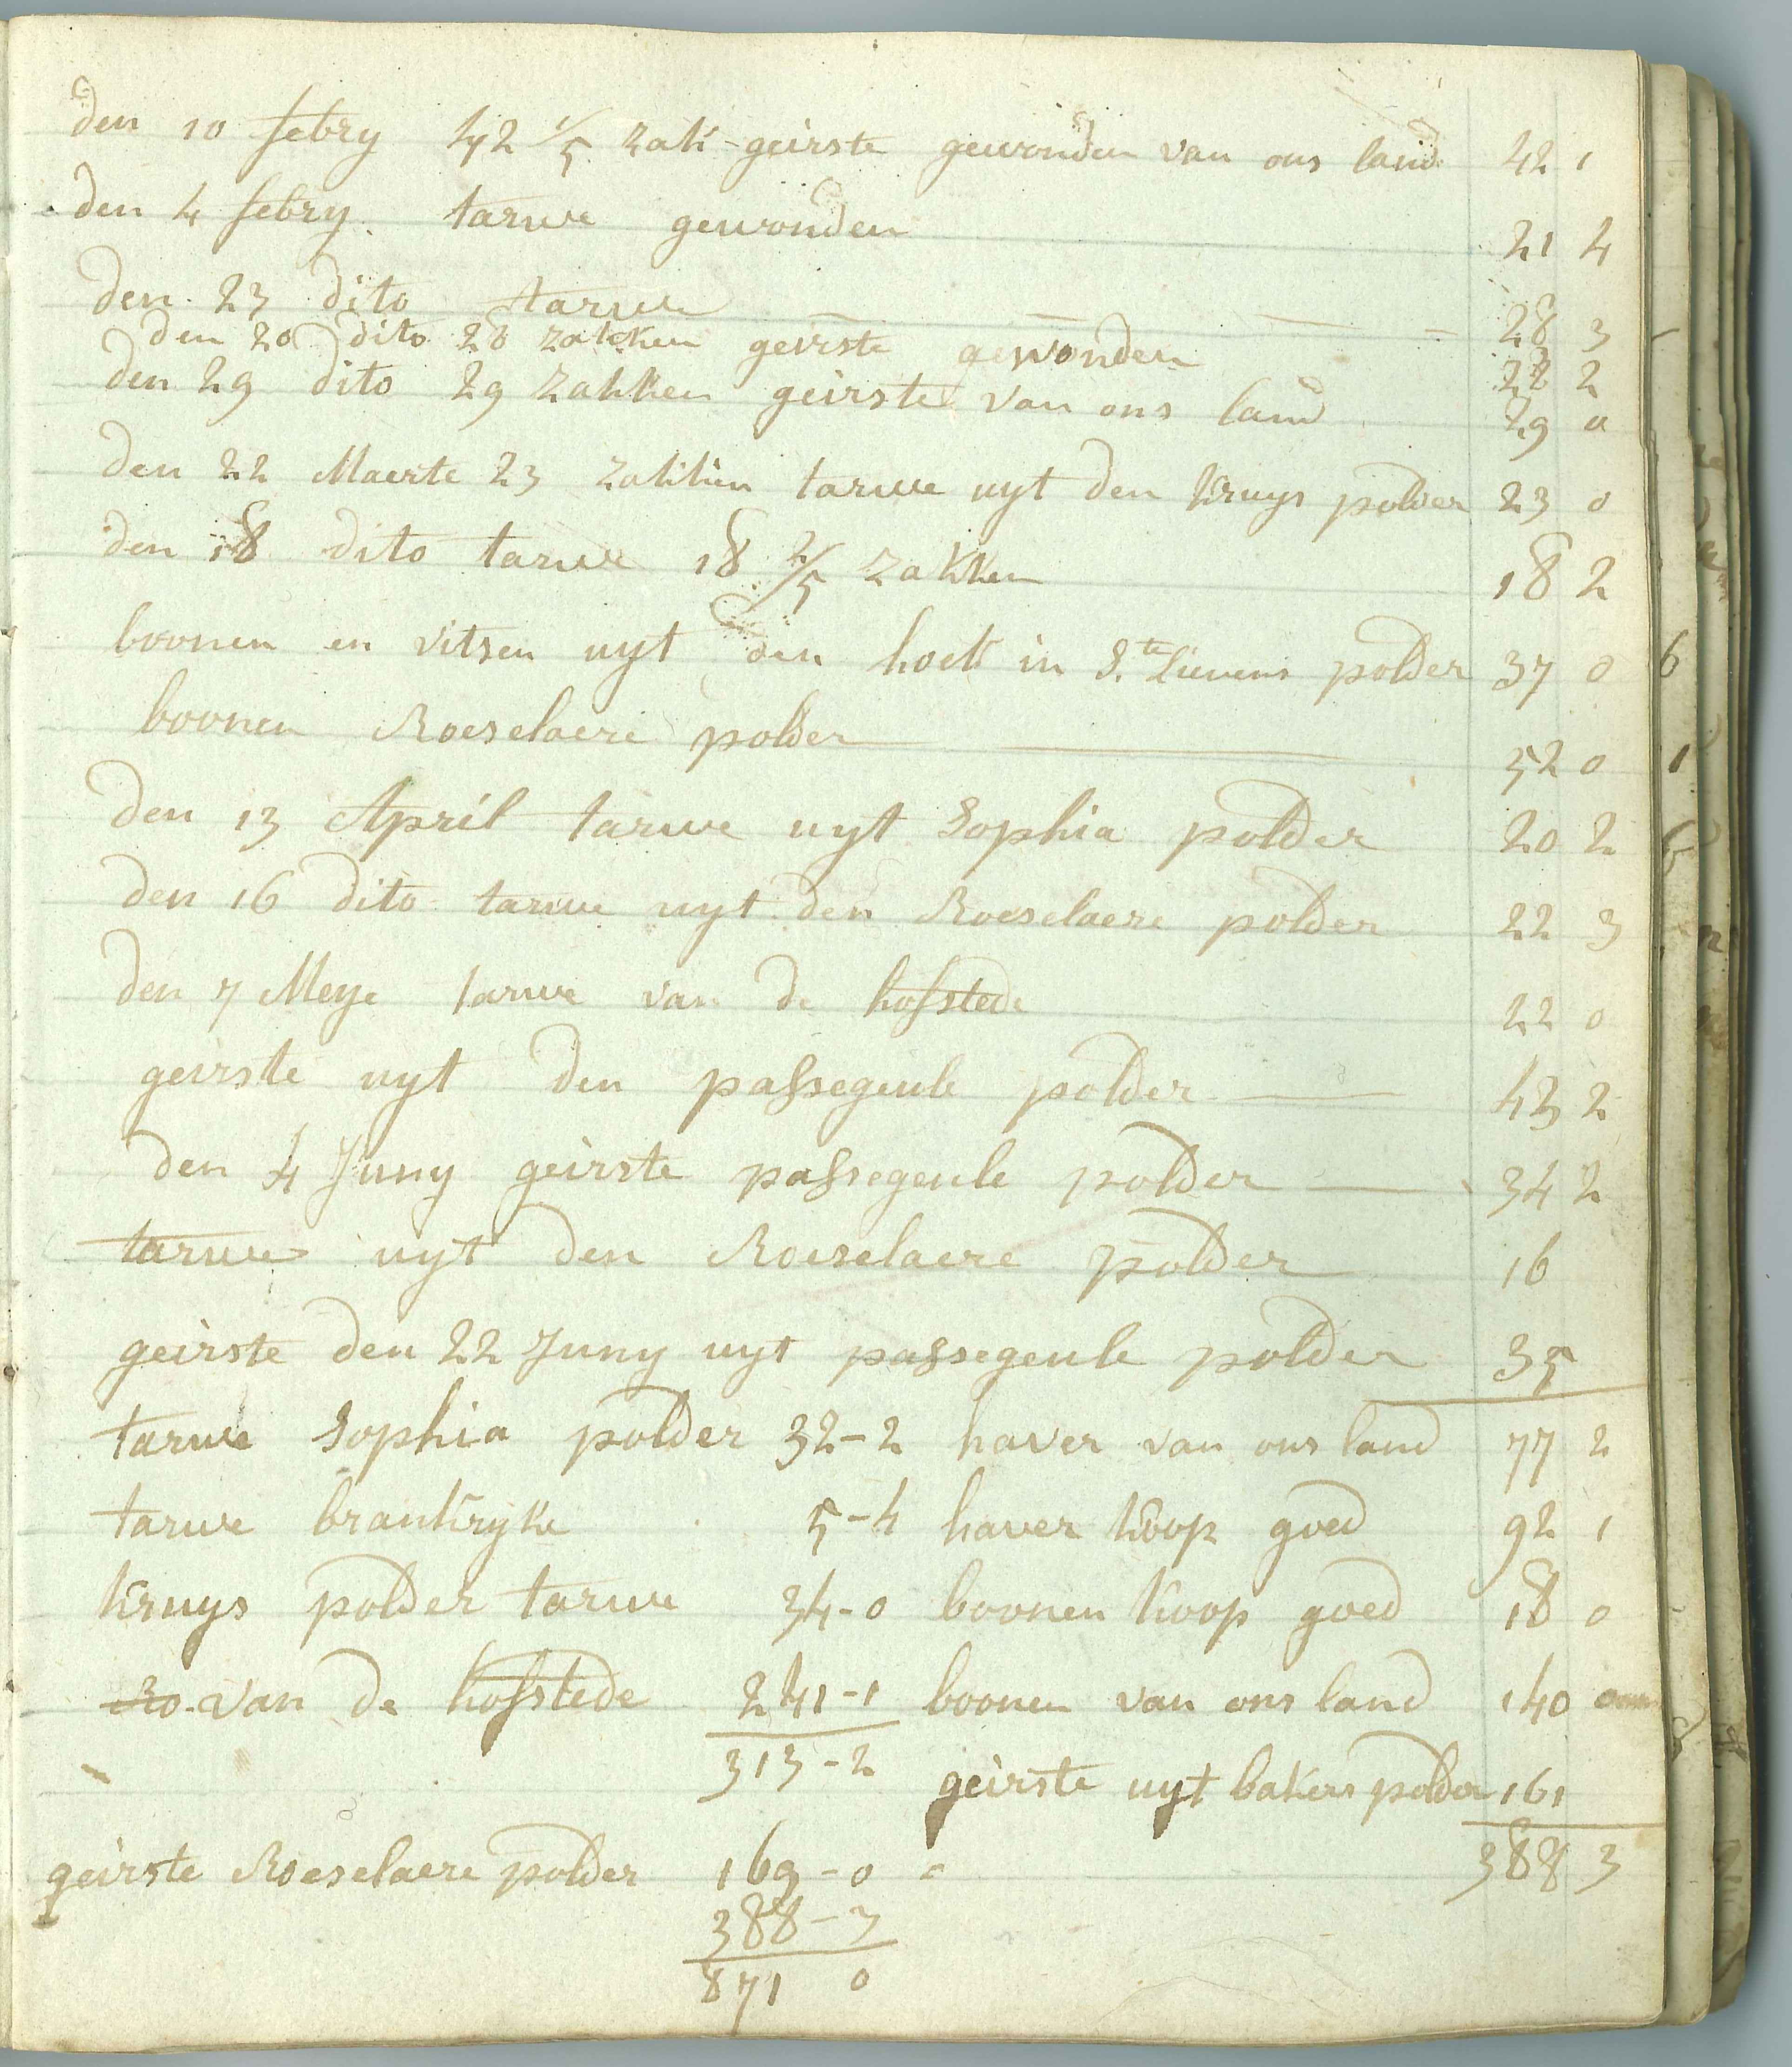 den 10 febry 42 1/5 zak geirste gewonden van ons land 42 1
den 4 febry tarwe gewonden 21 4
den 23 dito tarwe 28 3
den 20 dito 28 zakken geirste gewonden 28 2
den 29 dito 29 zakken geirste van ons land 29 0
den 22 Maerte 23 zakken tarwe uyt den Kruys polder 23 0
den 18 dito tarwe 18 2/5 zakken 18 2
boonen en vitsen uyt den hoek in S.te Lievens polder 37 0
boonen Roeselaere polder 52 0
den 13 April tarwe uyt Sophia polder 20 2
den 16 dito tarwe uyt den Roeselaere polder 22 3
den 7 Meye tarwe van de hofstede 22 0
geirste uyt den passegeule polder 43 2
den 4 Juny geirste passegeule polder 34 2
tarwe uyt den Roeselaere polder 16
geirste den 22 Juny uyt passegeule polder 35
tarwe Sophia polder 32-2 haver van ons land 77 2
tarwe brankryke 5-4 haver koop goed 92 1
Kruys polder tarwe 34-0 boonen koop goed 18 0
20. van de hofstede 241-1 boonen van ons land 140 0
313-2 geirste uyt bakers polder 161
geirste Roeselaere polder 169-0 388 3
388-3
871 0